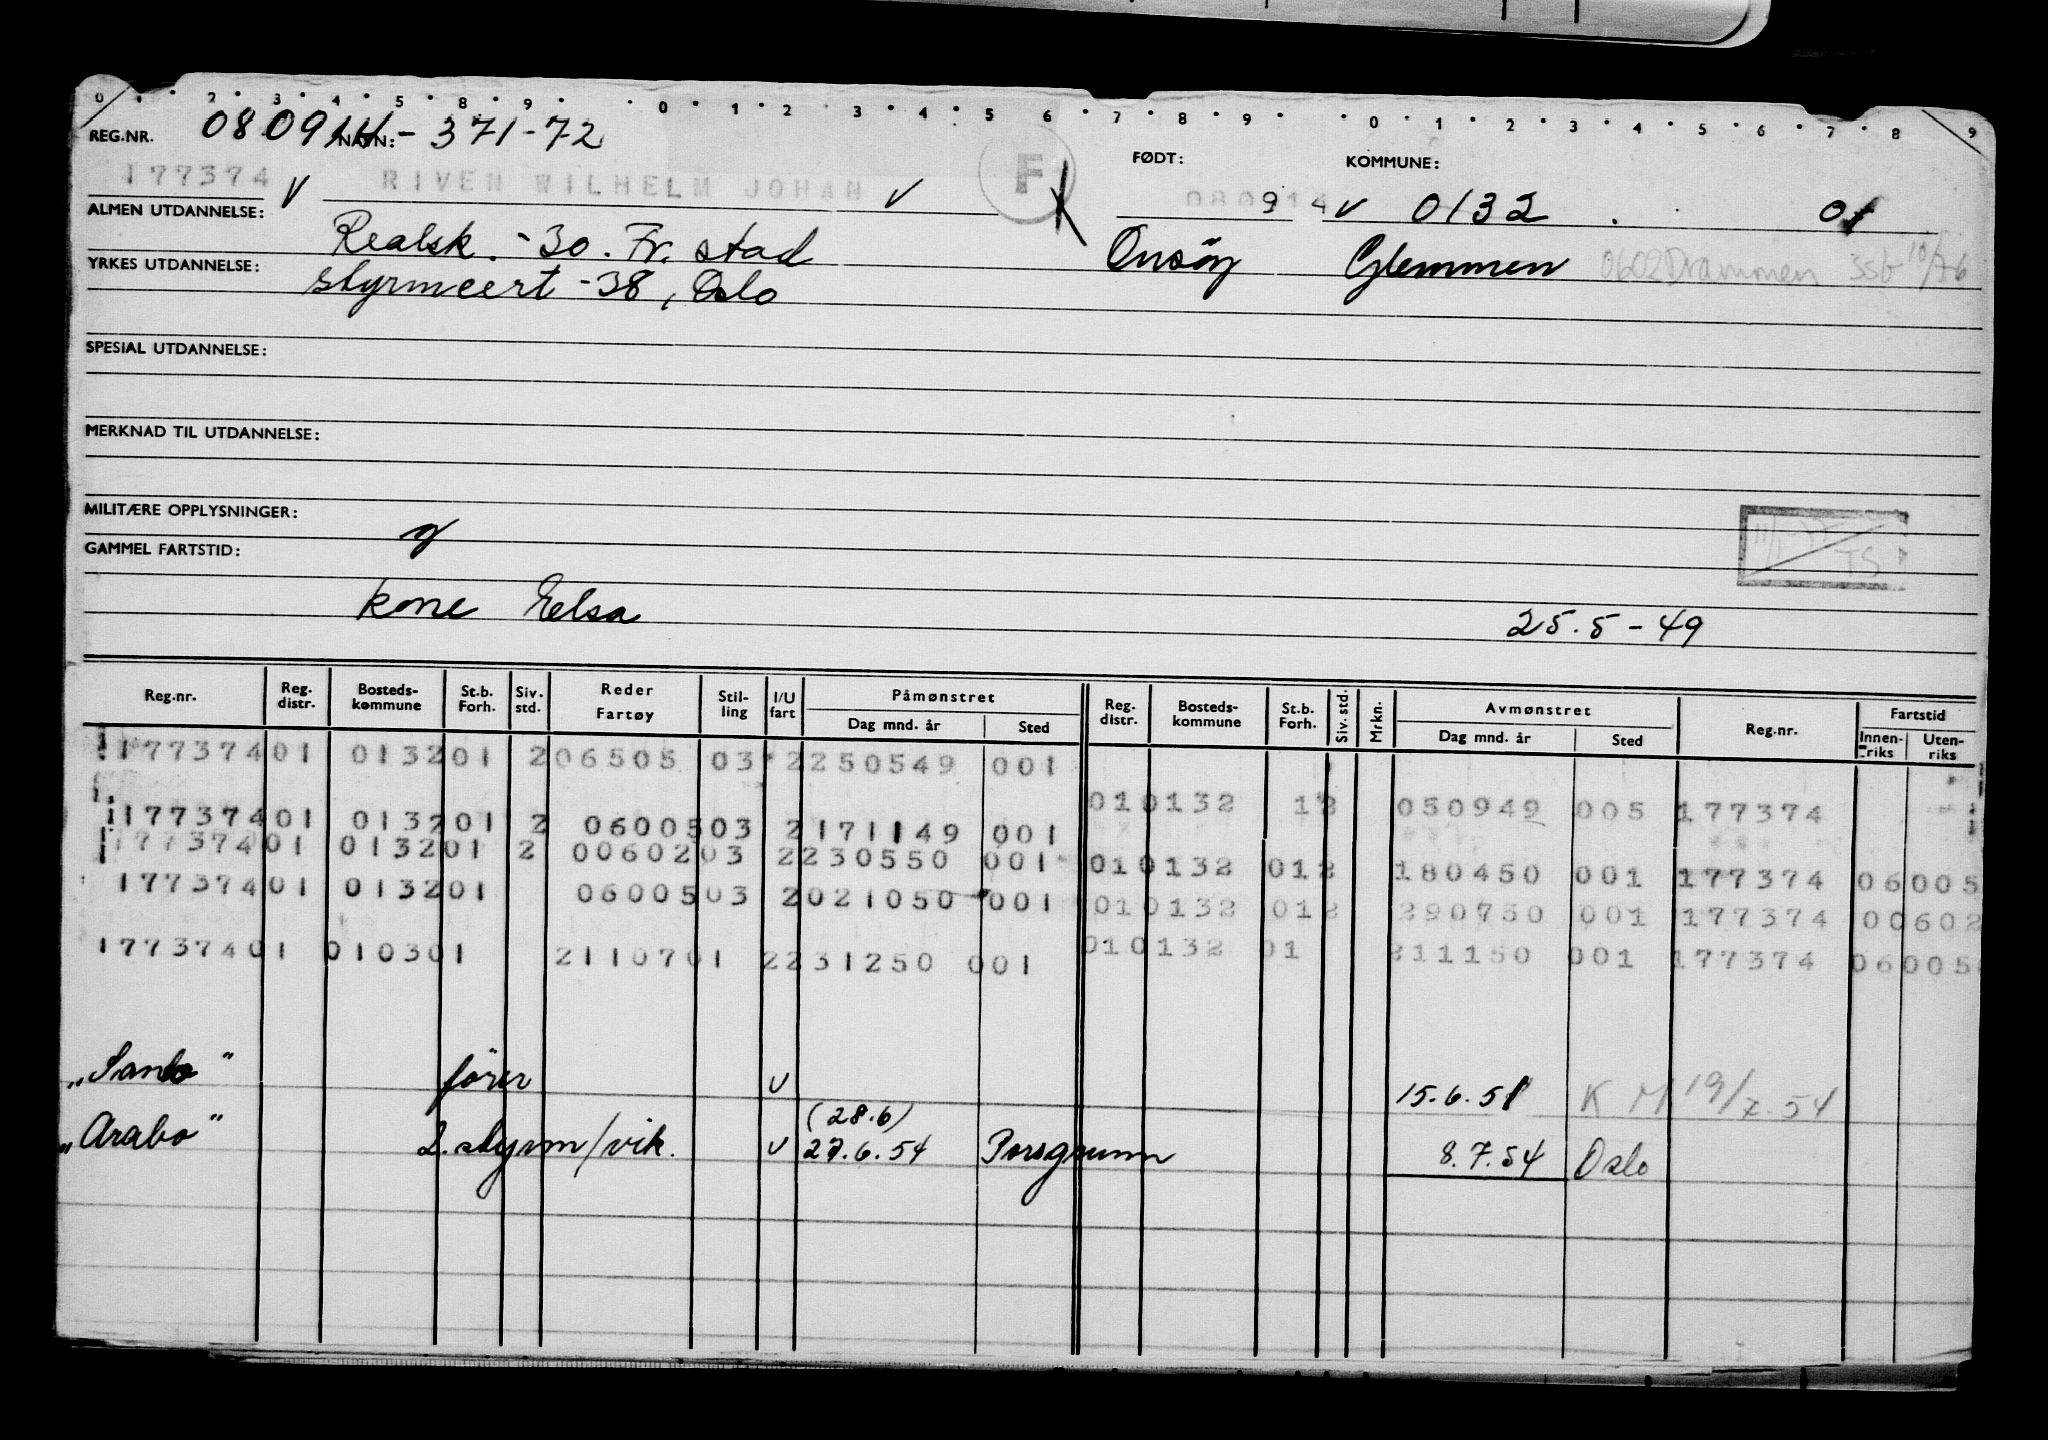 0 2 3 4 5 8 9 0 1 2 3 4 5 6 7 8 9 0 1 2 3 4 5 6 7 8 9
REG.NR. 080914 NAVN: - 371-72 FØDT: KOMMUNE:
177374 V RIVEN WILHELM JOHAN V F 080914 V 0132 . 01
ALMEN UTDANNELSE: Realsk. -30. Fr.stad Onsøy Glemmen 0602 Drammen SSB 10/76
YRKES UTDANNELSE: styrmcert -38, Oslo
SPESIAL UTDANNELSE:
MERKNAD TIL UTDANNELSE:
MILITÆRE OPPLYSNINGER:
TS
GAMMEL FARTSTID:
kone Elsa 25.5-49
Reg.nr. Reg. distr. Bosteds-kommune St.b. Forh. Siv. std. Reder Fartøy Stil-ling I/U fart Påmønstret Dag mnd. år Sted Reg. distr. Bosteds-kommune St.b. Forh. Siv. std. Mrkn. Avmønstret Dag mnd. år Sted Reg.nr. Fartstid Innen-riks Uten-riks
177374 01 0132 01 2 06505 03 2 250549 001
01 0132 12 050949 005 177374
177374 01 0132 01 2 06005 03 2 171149 001
177374 01 0132 01 2 00602 03 2 230550 001
01 0132 012 180450 001 177374 06005
177374 01 0132 01 06005 03 2 021050 001
01 0132 012 290750 001 177374 00602
177374 01 0103 01 21107 01 2 231250 001
01 0132 01 211150 001 177374 06005
"Sanbo" fører U 15.6.51 K M 19/7.54
(28.6)
"Arabo" 2. styrm/vik. U 27.6.54 Porsgrunn 8.7.54 Oslo